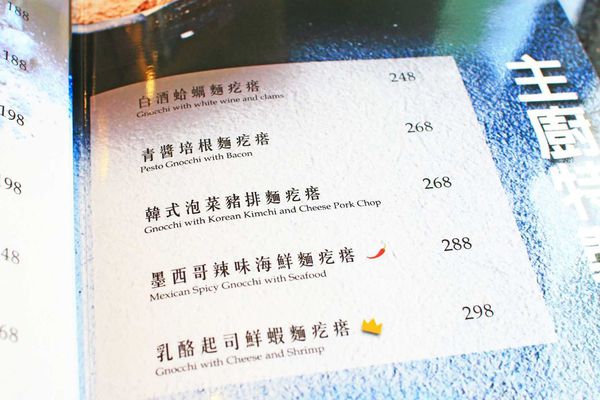 188
188
198
198
48
68
白酒蛤蠣麵疙瘩 248
Gnocchi with white wine and clams
青醬培根麵疙瘩 268
Pesto Gnocchi with Bacon
韓式泡菜豬排麵疙瘩 268
Gnocchi with Korean Kimchi and Cheese Pork Chop
墨西哥辣味海鮮麵疙瘩 288
Mexican Spicy Gnocchi with Seafood
乳酪起司鮮蝦麵疙瘩 298
Gnocchi with Cheese and Shrimp
主廚特